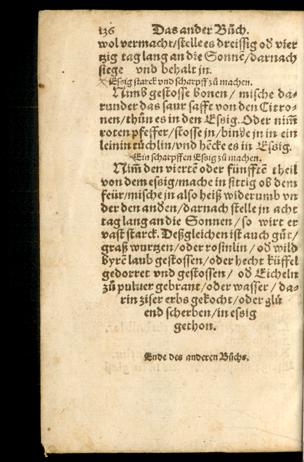 136 Das ander Bůch.
wol vermacht/stelle es dreissig oď vier
tzig tag lang an die Sonne/darnach
siege vnd behalt jn.
Essig starck vnd scharpff zů machen.
Nimb gestosse bonen/ mische da-
runder das saur safft von den Citro-
nen/thůn es in den Essig. Oder nim̃
roten pfeffer/stosse jn/binde jn in ein
leinin tůchlin/vnd hēcke es in Essig.
Ein scharpffen Essig zů machen.
Nim̃ den viertē oder fünfftē theil
von dem essig/mache in sittig oß dem
feür/mische jn also heiß widerumb vn
der den anden/darnach stelle jn acht
tag lang an die Sonnen/ so wirt er
vast starck. Deßgleichen ist auch gůt/
graß wurtzen/oder rosinlin/ oď wild
byrē laub gestossen/oder hecht küffel
gedorret vnd gestossen/ oď Eicheln
zů puluer gebrant/oder wasser/ da-
rin ziser erbs gekocht/oder glü
end scherben/in essig
gethon.
Ende des anderen Bůchs.